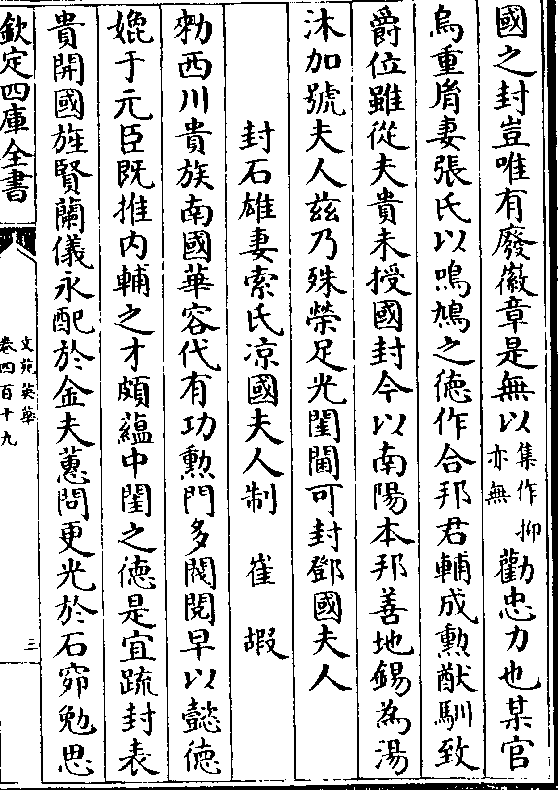 國之封豈唯有廢徽章是無以集作抑亦無勸忠力也某官
烏重胤妻張氏以鳴鳩之德作合邦君輔成勲猷馴致
爵位雖從夫貴未授國封今以南陽本邦善地錫為湯
沐加號夫人兹乃殊榮足光閨閫可封鄧國夫人
封石雄妻索氏凉國夫人制 崔嘏
勑西川貴族南國華容代有功勲門多閥閱早以懿德
媲于元臣既推内輔之才頗蘊中閨之德是宜疏封表
貴開國旌賢蘭儀永配於金夫蕙問更光於石窌勉思
欽定四庫全書
文苑英華
卷四百十九
三